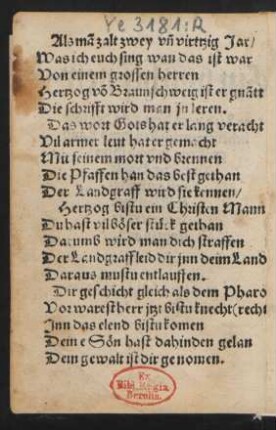 Ye 3181:R
Als mā zalt zwey vñ virttzig Jar/
Was ich euch sing wan das ist war
Von einem grossen herren
Hertzog vō Braunschweig ist er gnātt
Die schrifft wird man jn leren.
Das wort Gots hat er lang veracht
Vil armer leut hat er gemacht
Mit seinem mort vnd brennen
Die Pfaffen han das best gethan
Der Landgraff wird sie kennen/
Hertzog bistu ein Christen Mann
Du hast vil böser stück gethan
Darumb wird man dich straffen
Der Landgraff leid dir jnn deim Land
Daraus mustu entlauffen.
Dir geschicht gleich als dem Pharo
Vor warestu herr jtzt bistu knecht (recht
Jnn das elend bistu komen
Deine Sön hast dahinden gelan
Dein gewalt ist dir genomen.
Ex
Bibl. Regia
Berolin.